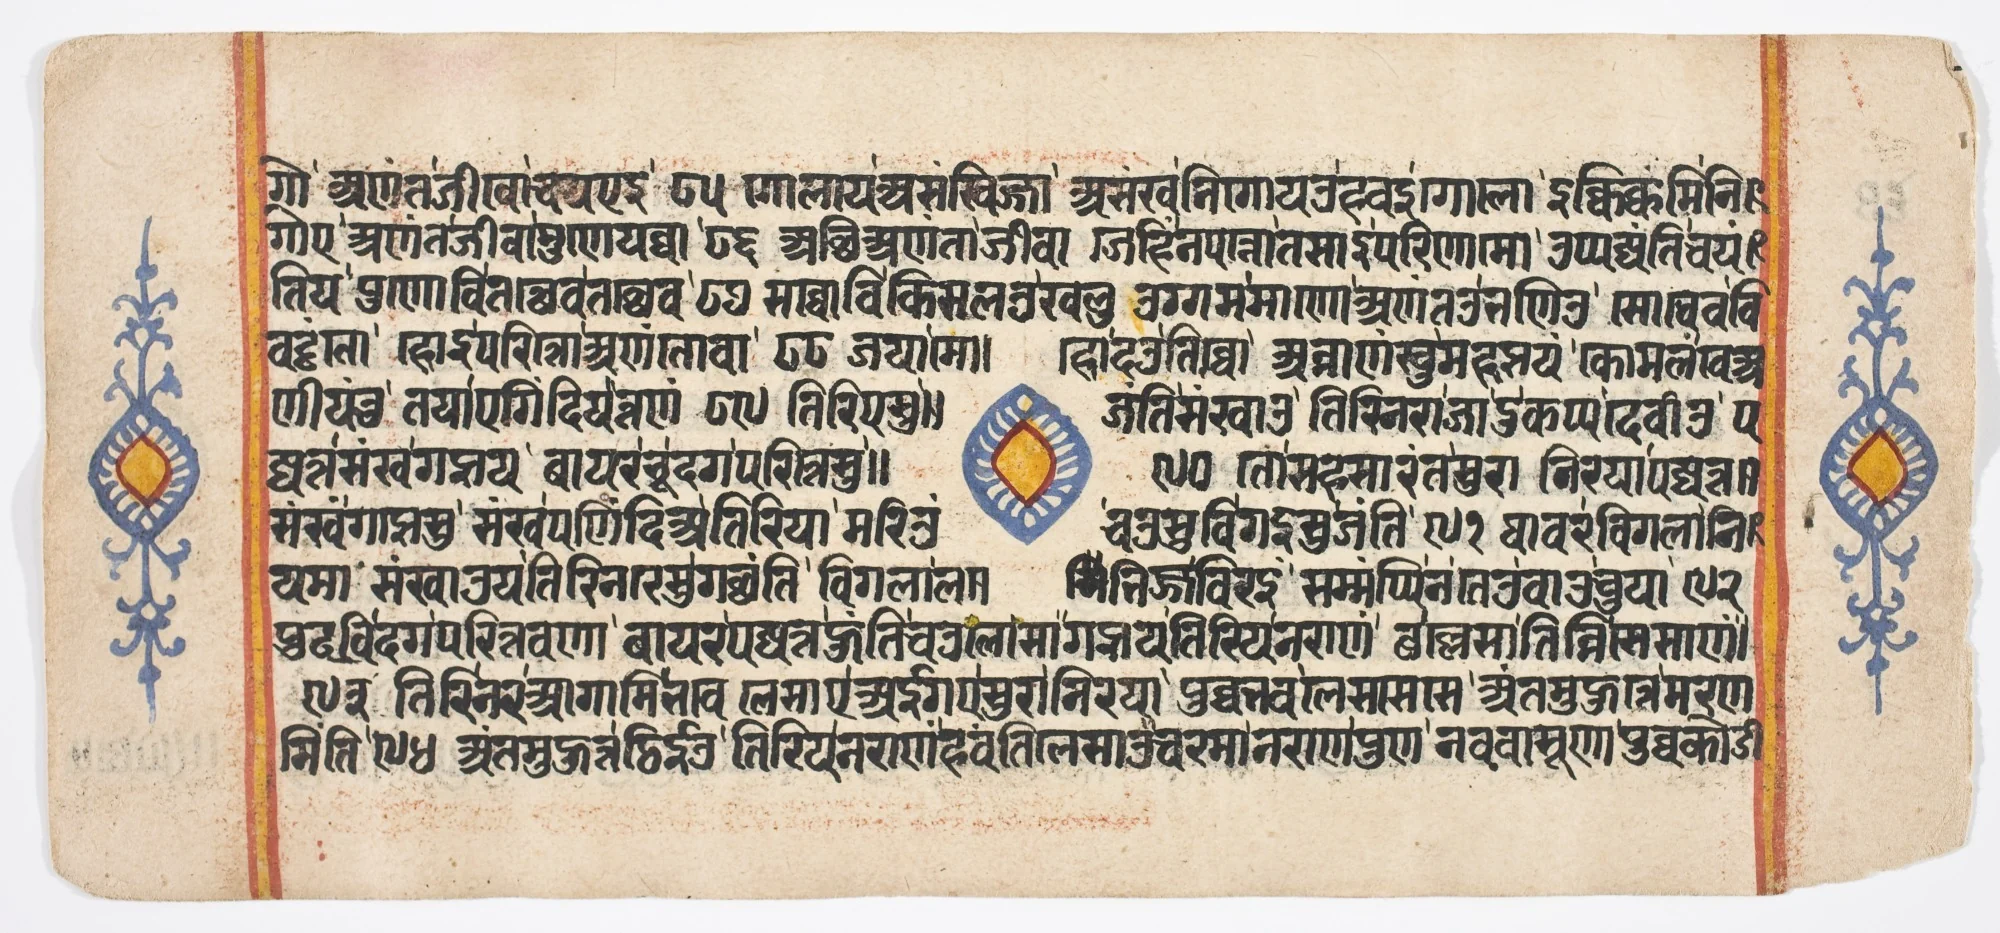 गो अणंतजीवो चयएइ ८५ गोलाय असंखिज्जा असंखनिगोयउ हवइ गोलो इक्किक्कंमि नि
गोए अणंतजीवा मुणेयव्वा ८६ अत्थि अणंता जीवा जेहिं न पत्तो तसाइपरिणामो उप्पज्जंति चयं
तिय पुणोवि तत्थेव तत्थेव ८७ सव्वोवि किसलउ खलु उग्गममाणो अणंतउ भणिउ सो चेव वि
वड्ढंतो होइ परित्तो अणंतो वा ८८ जया मो॥ होदउ तिव्वो अन्नाणं खु महब्भयं कोमलं वेअ
णीयं तु तया एगिंदियत्तणं ८९ तिरिएसु॥ जंति संखाउ तिरिनरा जा दुकप्पदेवीउ प
ज्जत्तसंखगब्भय बायरभूदगपरित्तेसु॥ ९० तो सहसारंतसुरा निरया पज्जत्त॥
संखगब्भेसु संखपणिंदिअतिरिया मरिउं चउसुवि गइसु जंति ९१ थावरविगला नि
यमा संखाउय तिरिनरेसु गच्छंति विगला ल॥ भिज्ज विरइं सम्मंपि न तेउवाउचुया ९२
पुढविदगपरित्तवणा बायरपज्जत्त हुंति चउलेसा गब्भयतिरियनराणं छल्लेसा तिन्नि सेसाणं।
९३ तिरिनरआगामिभव लेसाए अइगए सुरा निरया पुव्वभवलेससेसे अंतमुहुत्ते मरण
मिंति ९४ अंतमुहुत्तठिईउ तिरियनराणं हवंति लेसाउ चरमा नराण पुण नववासूणा पुव्वकोडी